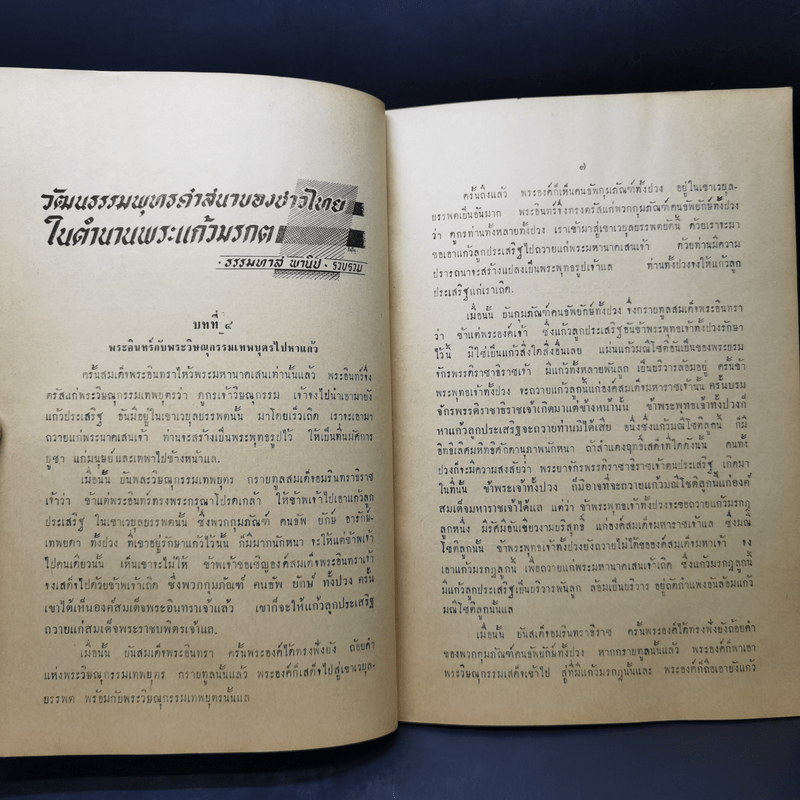 วัฒนธรรมพุทธศาสนาของชาวไทย
ในตำนานพระแก้วมรกต
· ธรรมทาส พานิช · รวบรวม
บทที่ ๔
พระอินทร์กับพระวิษณุกรรมเทพบุตรไปหาแก้ว
ครั้นสมเด็จพระอินทราไหว้พระมหานาคเสนเท่านั้นแล้ว พระอินทร์จึง
ตรัสแก่พระวิษณุกรรมเทพยุตรว่า ดูกรเจ้าวิษณุกรรม เจ้าจงไปนำเอามายัง
แก้วประเสริฐ อันมีอยู่ในเขาเวยุลยรรพตนั้น มาโดยเร็วเถิด เราจะเอามา
ถวายแก่พระนาคเสนเจ้า ท่านจะสร้างเป็นพระพุทธรูปไว้ ให้เป็นที่นมัสการ
ยูชา แก่มนุษย์และเทพาไปข้างหน้าแล
เมื่อนั้น ยันพระวิษณุกรรมเทพยุตร กรายทูลสมเด็จอมรินทราธิราช
เจ้าว่า ข้าแต่พระอินทร์ทรงพระกรุณาโปรดเกล้า ให้ข้าพเจ้าไปเอาแก้วลูก
ประเสริฐ ในเขาเวยุลยรรพตนั้น ซึ่งพวกกุมภัณฑ์ คนธัพ ยักษ์ อารักษ์-
เทพยดา ทั้งปวง ที่เขาอยู่รักษาแก้วไว้นั้น ก็มีมากนักหนา จะให้แต่ข้าพเจ้า
ไปคนเดียวนั้น เห็นเขาจะไม่ให้ ข้าพเจ้าขอเชิญองค์สมเด็จพระอินทราเจ้า
จงเสด็จไปด้วยข้าพเจ้าเถิด ซึ่งพวกกุมภัณฑ์ คนธัพ ยักษ์ ทั้งปวง ครั้น
เขาได้เห็นองค์สมเด็จพระอินทราเจ้าแล้ว เขาก็จะให้แก้วลูกประเสริฐ
ถวายแก่สมเด็จพระราชบพิตรเจ้าแล
เมื่อนั้น ยันสมเด็จพระอินทรา ครั้นพระองค์ได้ทรงฟังยัง ถ้อยคำ
แห่งพระวิษณุกรรมเทพยุตร กรายทูลนั้นแล้ว พระองค์ก็เสด็จไปสู่เขาเวยุล-
ยรรพต พร้อมกับพระวิษณุกรรมเทพยุตรนั้นแล
๗
ครั้นถึงแล้ว พระองค์ก็เห็นคนธัพกุมภัณฑ์ทั้งปวง อยู่ในเขาเวยุล-
ยรรพตเป็นอันมาก พระอินทร์จึงทรงตรัสแก่พวกกุมภัณฑ์คนธัพยักษ์ทั้งปวง
ว่า ดูกรท่านทั้งหลายทั้งปวง เราเข้ามาสู่เขาเวยุลยรรพตยัดนี้ ด้วยเราจะมา
ขอเอาแก้วลูกประเสริฐไปถวายแก่พระมหานาคเสนเจ้า ด้วยท่านมีความ
ปรารถนาจะสร้างแปลงเป็นพระพุทธรูปเจ้าแล ท่านทั้งปวงจงให้แก้วลูก
ประเสริฐแก่เราเถิด
เมื่อนั้น ยันกุมภัณฑ์คนธัพยักษ์ทั้งปวง จึงกรายทูลสมเด็จพระอินทรา
ว่า ข้าแต่พระองค์เจ้า ซึ่งแก้วลูกประเสริฐอันข้าพระพุทธเจ้าทั้งปวงรักษา
ไว้นี้ มิใช่เป็นแก้วสิ่งใดสิ่งอื่นเลย แม่นแก้วมณีโชติอันเป็นของพระยรม
จักรพรรดิราชาธิราชเจ้า มีแก้วทั้งหลายพันลูก เป็นยริวารล้อมอยู่ ครั้นข้า
พระพุทธเจ้าทั้งปวง จะถวายแก้วลูกนี้แก่องค์สมเด็จมหาราชเจ้านั้น ครั้นบรม
จักรพรรดิราชาธิราชเจ้าเกิดมาแต่ข้างหน้านั้น ข้าพระพุทธเจ้าทั้งปวงก็
หาแก้วลูกประเสริฐจะถวายท่านมิได้เสีย อนึ่งซึ่งแก้วมณีโชติลูกนี้ ก็มี
อิทธิเลิศมหิทธิศักดานุภาพนักหนา ถ้าสำแดงฤทธิ์เสด็จที่ใดดังนั้น คนทั้ง
ปวงก็จะมีความสงสัยว่า พระยาจักรพรรดิราชาธิราชเจ้าตนประเสริฐ เกิดมา
ในที่นั้น ข้าพระเจ้าทั้งปวง ก็มิอาจที่จะถวายแก้วมณีโชติลูกนี้แก่องค์
สมเด็จมหาราชเจ้าได้แล แต่ว่า ข้าพระพุทธเจ้าทั้งปวงจะขอถวายแก้วมรกฎ
ลูกหนึ่ง มีรัศมีอันเขียวงามยริสุทธิ์ แก่องค์สมเด็จมหาราชเจ้าแล ซึ่งมณี
โชติลูกนั้น ข้าพระพุทธเจ้าทั้งปวงยังถวายไม่ได้ขอองค์สมเด็จมหาราชเจ้า จง
เอาแก้วมรกฎลูกนี้ เพื่อถวายแก่พระมหานาคเสนเจ้าเถิด ซึ่งแก้วมรกฎลูกนี้
มีแก้วลูกประเสริฐเป็นยริวารพันลูก ล้อมเป็นยริวาร อยู่ถัดกำแพงอันล้อมแก้ว
มณีโชติลูกนั้นแล
เมื่อนั้น ยันสเด็จอมรินทราธิราช ครั้นพระองค์ได้ทรงฟังยังถ้อยคำ
ของพวกกุมภัณฑ์คนธัพยักษ์ทั้งปวง หากกรายทูลนั้นแล้ว พระองค์ก็พาเอา
พระวิษณุกรรมเสด็จเข้าไป สู่ที่มีแก้วมรกฎนั้นและ พระองค์ก็ถือเอายังแก้ว